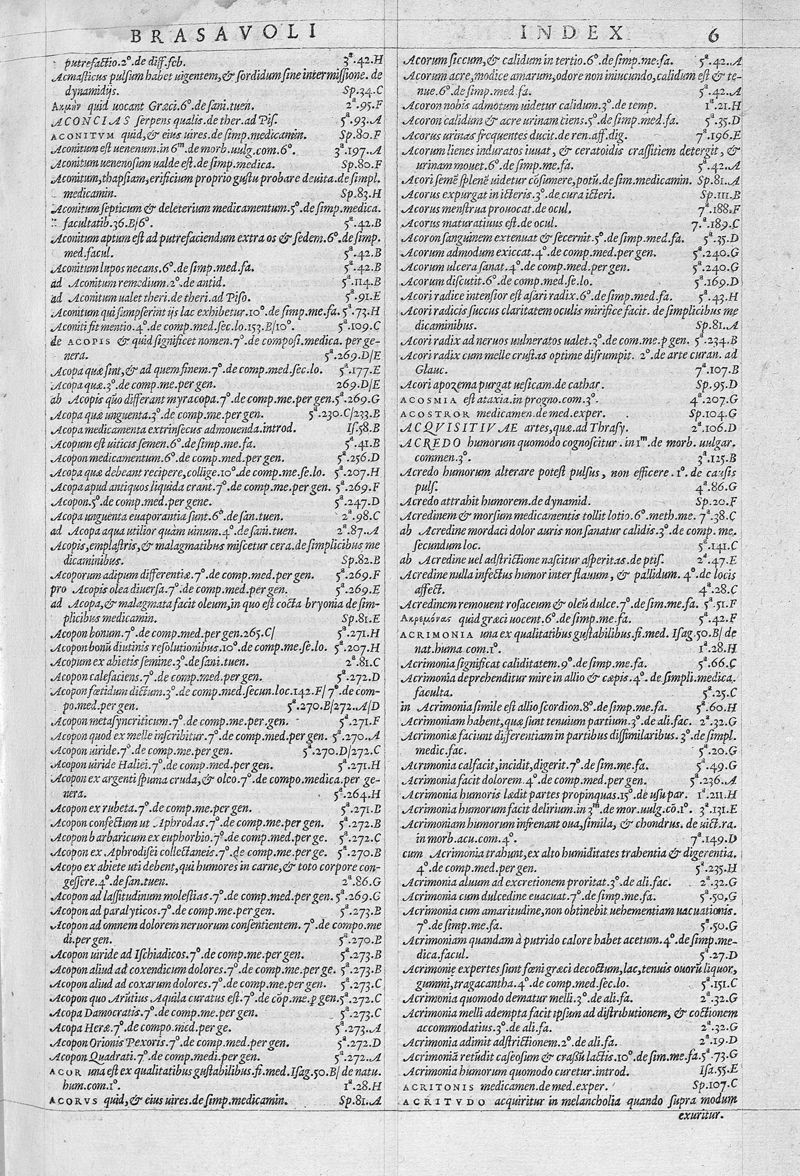 BRASAVOLI
putrefactio.2°.de diff.feb. 3ª.42.H
Acmasticus pulsum habet uigentem,& sordidum sine intermissione. de
dynamidijs. Sp.34.C
Ακμὴν quid uocant Græci.6°.de sani.tuen. 2ª.95.F
ACONCIAS serpens qualis.de ther.ad Pis. 5ª.93.A
ACONITVM quid,& eius uires.de simp.medicamin. Sp.80.F
Aconitum est uenenum.in 6ᵐ.de morb.uulg.com.6°. 3ª.197.A
Aconitum uenenosum ualde est.de simp.medica. Sp.80.F
Aconitum,thapsiam,erificium proprio gustu probare deuita.de simpl.
medicamin. Sp.83.H
Aconitum septicum & deleterium medicamentum.5°.de simp.medica.
facultatib.36.B/6°. 5ª.42.B
Aconitum aptum est ad putrefaciendum extra os & sedem.6°.de simp.
med.facul. 5ª.42.B
Aconitum lupos necans.6°.de simp.med.fa. 5ª.42.B
ad Aconitum remedium.2°.de antid. 5ª.114.B
ad Aconitum ualet theri.de theri.ad Piso. 5ª.91.E
Aconitum qui sumpserint ijs lac exhibetur.10°.de simp.me.fa. 5ª.73.H
Aconiti fit mentio.4°.de comp.med.sec.lo.153.B/10°. 5ª.109.C
de ACOPIS & quid significet nomen.7°.de composi.medica.per ge-
nera. 5ª.269.D/E
Acopa quæ sint,& ad quem finem.7°.de comp.med.sec.lo. 5ª.177.E
Acopa quæ.3°.de comp.me.per gen. 269.D/E
ab Acopis quo differant myracopa.7°.de comp.me.per gen.5ª.269.G
Acopa quæ unguenta.3°.de comp.me.per gen. 5ª.230.C/233.B
Acopa medicamenta extrinsecus admouenda.introd. Is.58.B
Acopum est uiticis semen.6°.de simp.me.fa. 5ª.41.B
Acopon medicamentum.6°.de comp.med.per gen. 5ª.256.D
Acopa quæ debeant recipere,collige.10°.de comp.me.se.lo. 5ª.207.H
Acopa apud antiquos liquida erant.7°.de comp.me.per gen. 5ª.269.F
Acopon.5°.de comp.med.per gene. 5ª.247.D
Acopa unguenta euaporantia sunt.6°.de san.tuen. 2ª.98.C
ad Acopa aqua utilior quàm uinum.4°.de sani.tuen. 2ª.87.A
Acopis,emplastris,& malagmatibus miscetur cera.de simplicibus me
dicaminibus. Sp.82.B
Acoporum adipum differentiæ.7°.de comp.med.per gen. 5ª.269.F
pro Acopis olea diuersa.7°.de comp.med.per gen. 5ª.269.E
ad Acopa,& malagmata facit oleum,in quo est cocta bryonia de sim-
plicibus medicamin. Sp.81.E
Acopon bonum.7°.de comp.med.per gen.265.C/ 5ª.271.H
Acopon bonū diutinis resolutionibus.10°.de comp.me.se.lo. 5ª.207.H
Acopum ex abietis semine.3°.de sani.tuen. 2ª.81.C
Acopon calefaciens.7°.de comp.med.per gen. 5ª.272.D
Acopon fœtidum dictum.3°.de comp.med.secun.loc.142.F/ 7°.de com-
po.med.per gen. 5ª.270.B/272.A/D
Acopon metasyncriticum.7°.de comp.me.per gen. 5ª.271.F
Acopon quod ex melle inscribitur.7°.de comp.med.per gen. 5ª.270.A
Acopon uiride.7°.de comp.me.per gen. 5ª.270.D/272.C
Acopon uiride Haliei.7°.de comp.me.per gen. 5ª.271.H
Acopon ex argenti spuma cruda,& oleo.7°.de compo.medica.per ge-
nera. 5ª.264.H
Acopon ex rubeta.7°.de comp.me.per gen. 5ª.271.B
Acopon confectum ut Aphrodas.7°.de comp.me.per gen. 5ª.272.B
Acopon barbaricum ex euphorbio.7°.de comp.med.per ge. 5ª.272.C
Acopon ex Aphrodisei collectaneis.7°.de comp.me.per ge. 5ª.270.B
Acopo ex abiete uti debent,qui humores in carne,& toto corpore con-
gessere.4°.de san.tuen. 2ª.86.G
Acopon ad lassitudinum molestias.7°.de comp.med.per gen. 5ª.269.G
Acopon ad paralyticos.7°.de comp.me.per gen. 5ª.273.B
Acopon ad omnem dolorem neruorum consentientem. 7°.de compo.me
di.per gen. 5ª.270.E
Acopon uiride ad Ischiadicos.7°.de comp.me.per gen. 5ª.273.B
Acopon aliud ad coxendicum dolores.7°.de comp.me.per ge. 5ª.273.B
Acopon aliud ad coxarum dolores.7°.de comp.me.per gen. 5ª.273.C
Acopon quo Arruius Aquila curatus est.7°.de cōp.me.p gen.5ª.272.C
Acopa Damocratis.7°.de comp.me.per gen. 5ª.273.C
Acopa Heræ.7°.de compo.med.per ge. 5ª.273.A
Acopon Orionis Pexoris.7°.de comp.med.per gen. 5ª.272.D
Acopon Quadrati.7°.de comp.medi.per gen. 5ª.272.A
ACOR una est ex qualitatibus gustabilibus.fi.med.Isag.50.B/ de natu.
hum.com.1°. 1ª.28.H
ACORVS quid,& eius uires.de simp.medicamin. Sp.81.A
INDEX 6
Acorum siccum,& calidum in tertio.6°.de simp.me.fa. 5ª.42.A
Acorum acre,modice amarum,odore non iniucundo,calidum est & te-
nue.6°.de simp.med.fa. 5ª.42.A
Acoron nobis admotum uidetur calidum.3°.de temp. 1ª.21.H
Acoron calidum & acre urinam ciens.5°.de simp.med.fa. 5ª.35.D
Acorus urinas frequentes ducit.de ren.aff.dig. 7ª.196.E
Acorum lienes induratos iuuat, & ceratoidis crassitiem detergit, &
urinam mouet.6°.de simp.me.fa. 5ª.42.A
Acori semē splenē uidetur cōsumere,potū.de sim.medicamin. Sp.81.A
Acorus expurgat in icteris.3°.de cura icteri. Sp.111.B
Acorus menstrua prouocat.de ocul. 7ª.188.F
Acorus maturatiuus est.de ocul. 7ª.189.C
Acoron sanguinem extenuat & secernit.5°.de simp.med.fa. 5ª.35.D
Acorum admodum exiccat.4°.de comp.med.per gen. 5ª.240.G
Acorum ulcera sanat.4°.de comp.med.per gen. 5ª.240.G
Acorum discutit.6°.de comp.med.se.lo. 5ª.169.D
Acori radice intensior est asari radix.6°.de simp.med.fa. 5ª.43.H
Acori radicis succus claritatem oculis mirifice facit.de simplicibus me
dicaminibus. Sp.81.A
Acori radix ad neruos uulneratos ualet.3°.de com.me.p gen. 5ª.234.B
Acori radix cum melle crustas optime disrumpit. 2°.de arte curan. ad
Glauc. 7ª.107.B
Acori apozema purgat uesicam.de cathar. Sp.95.D
ACOSMIA est ataxia.in progno.com.3°. 4ª.207.G
ACOSTROR medicamen.de med.exper. Sp.104.G
ACQVISITIVAE artes,quæ.ad Thrasy. 2ª.106.D
ACREDO humorum quomodo cognoscitur . in 1ᵐ.de morb. uulgar.
commen.3°. 3ª.125.B
Acredo humorum alterare potest pulsus, non efficere . 1°.de causis
puls. 4ª.86.G
Acredo attrahit humorem.de dynamid. Sp.20.F
Acredinem & morsum medicamentis tollit lotio.6°.meth.me. 7ª.38.C
ab Acredine mordaci dolor auris non sanatur calidis.3°.de comp. me.
secundum loc. 5ª.141.C
ab Acredine uel adstrictione nascitur asperitas.de ptis. 2ª.47.E
Acredine nulla infectus humor inter flauum, & pallidum. 4°.de locis
affect. 4ª.28.C
Acredinem remouent rosaceum & oleū dulce.7°.de sim.me.fa. 5ª.51.F
Ακρεμόνας quid græci uocent.6°.de simp.me.fa. 5ª.42.F
ACRIMONIA una ex qualitatibus gustabilibus.fi.med. Isag.50.B/ de
nat.huma.com.1°. 1ª.28.H
Acrimonia significat caliditatem.9°.de simp.me.fa. 5ª.66.C
Acrimonia deprehenditur mire in allio & cæpis.4°.de simpli.medica.
faculta. 5ª.25.C
in Acrimonia simile est allio scordion.8°.de simp.me.fa. 5ª.60.H
Acrimoniam habent,quæ sunt tenuium partium.3°.de ali.fac. 2ª.32.G
Acrimoniæ faciunt differentiam in partibus dissimilaribus. 3°.de simpl.
medic.fac. 5ª.20.G
Acrimonia calfacit,incidit,digerit.7°.de sim.me.fa. 5ª.49.G
Acrimonia facit dolorem.4°.de comp.med.per gen. 5ª.236.A
Acrimonia humoris lædit partes propinquas.15°.de usu par. 1ª.211.H
Acrimonia humorum facit delirium.in 3ᵐ.de mor.uulg.cō.1°. 3ª.131.E
Acrimoniam humorum infrenant oua,simila, & chondrus. de uict.ra.
in morb.acu.com.4°. 7ª.149.D
cum Acrimonia trahunt,ex alto humiditates trahentia & digerentia.
4°.de comp.med.per gen. 5ª.235.H
Acrimonia aluum ad excretionem proritat.3°.de ali.fac. 2ª.32.G
Acrimonia cum dulcedine euacuat.7°.de simp.me.fa. 5ª.50.G
Acrimonia cum amaritudine,non obtinebit uehementiam uacuationis.
7°.de simp.me.fa. 5ª.50.G
Acrimoniam quandam à putrido calore habet acetum.4°.de simp.me-
dica.facul. 5ª.27.D
Acrimonie expertes sunt fœni græci decoctum,lac,tenuis ouorū liquor,
gummi,tragacantha.4°.de comp.med.sec.lo. 5ª.151.C
Acrimonia quomodo dematur melli.3°.de ali.fa. 2ª.32.G
Acrimonia melli adempta facit ipsum ad distributionem, & coctionem
accommodatius.3°.de ali.fa. 2ª.32.G
Acrimonia adimit adstrictionem.2°.de ali.fa. 2ª.19.D
Acrimoniā retūdit caseosum & crassū lactis.10°.de sim.me.fa.5ª.73.G
Acrimonia humorum quomodo curetur.introd. Isa.55.E
ACRITONIS medicamen.de med.exper. Sp.107.C
ACRITVDO acquiritur in melancholia quando supra modum
exuritur.